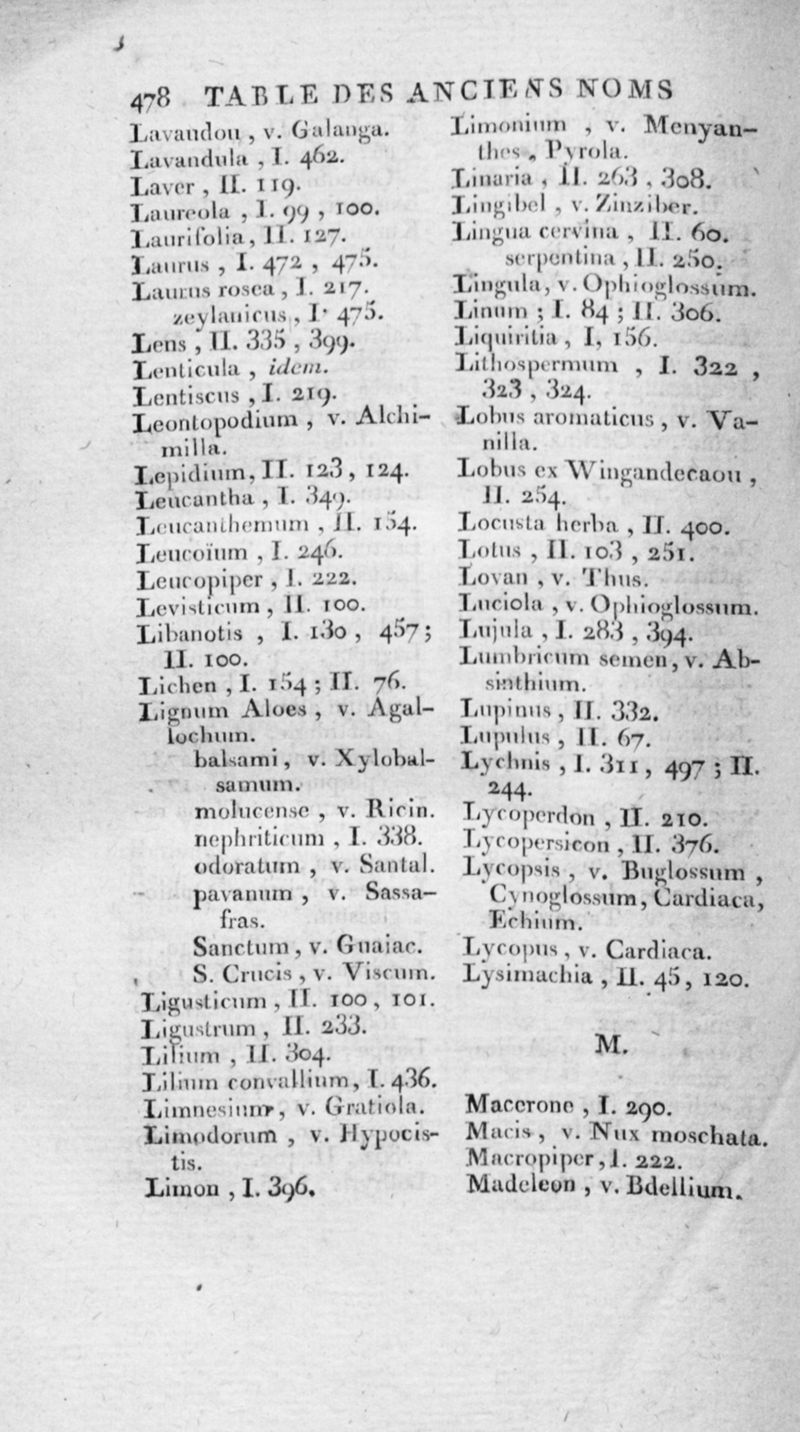 478 TABLE DES ANCIENS NOMS
Lavandou , v. Galanga.
Lavandula , I. 462.
Laver , II. 119.
Laureola , I. 99 , 100.
Laurifolia, II. 127.
Laurus , I. 472 , 475.
Laurus rosea , I. 217.
zeylanicus , I. 475.
Lens , II. 335 , 399.
Lenticula , idem.
Lentiscus , I. 219.
Leontopodium , v. Alchi-
milla.
Lepidium, II. 123 , 124.
Leucantha , I. 349.
Leucanthemum , II. 154.
Leucoïum , I. 246.
Leucopiper , I. 222.
Levisticum , II. 100.
Libanotis , I. 130 , 457 ;
II. 100.
Lichen , I. 154 ; II. 76.
Lignum Aloes , v. Agal-
lochum.
balsami , v. Xylobal-
samum.
molucense , v. Ricin.
nephriticum , I. 338.
odoratum , v. Santal.
pavanum , v. Sassa-
fras.
Sanctum , v. Guaiac.
S. Crucis , v. Viscum.
Ligusticum , II. 100 , 101.
Ligustrum , II. 233.
Lilium , II. 304.
Lilium convallium, I. 436.
Limnesium, v. Gratiola.
Limodorum , v. Hypocis-
tis.
Limon , I. 396.
Limonium , v. Menyan-
thes , Pyrola.
Linaria , II. 263 , 308.
Lingibel , v. Zinziber.
Lingua cervina , II. 60.
serpentina , II. 250.
Lingula, v. Ophioglossum.
Linum ; I. 84 ; II. 306.
Liquiritia , I, 156.
Lithospermum , I. 322 ,
323 , 324.
Lobus aromaticus , v. Va-
nilla.
Lobus ex Wingandecaou ,
II. 254.
Locusta herba , II. 400.
Lotus , II. 103 , 251.
Lovan , v. Thus.
Luciola , v. Ophioglossum.
Lujula , I. 283 , 394.
Lumbricum semen, v. Ab-
sinthium.
Lupinus , II. 332.
Lupulus , II. 67.
Lychnis , I. 311 , 497 ; II.
244.
Lycoperdon , II. 210.
Lycopersicon , II. 376.
Lycopsis , v. Buglossum ,
Cynoglossum, Cardiaca,
Echium.
Lycopus , v. Cardiaca.
Lysimachia , II. 45 , 120.
M.
Maccrone , I. 290.
Macis , v. Nux moschata.
Macropiper, I. 222.
Madeleon , v. Bdellium.